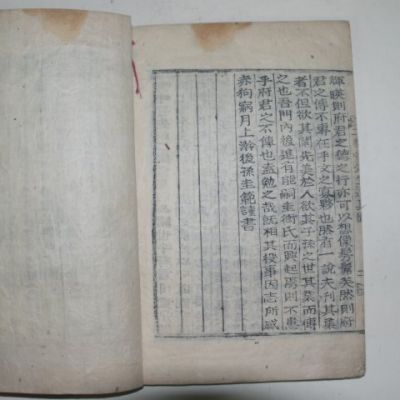 輝暎則府君之德之行亦可以想像髣髴矣然則府
君之傳不專在乎文之寡夥也然有一說夫刊其集
者不但欲其闡先美於人欲其子孫之世其業而傳
之也吾門內後進有能嗣圭衡氏而興起焉則不患
乎府君之不傳也盍勉之哉旣相其役事因志所感
赤狗窮月上澣後孫圭範謹書